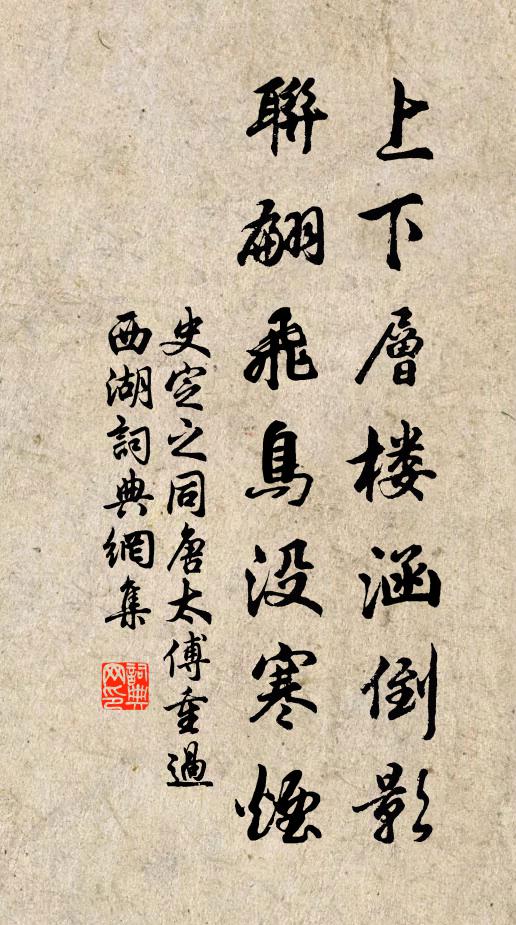 上下層楼涵倒影
聯翩飛鳥没寒煙
史定之同唐太傅重過
西湖詞典網集
詞典
网印